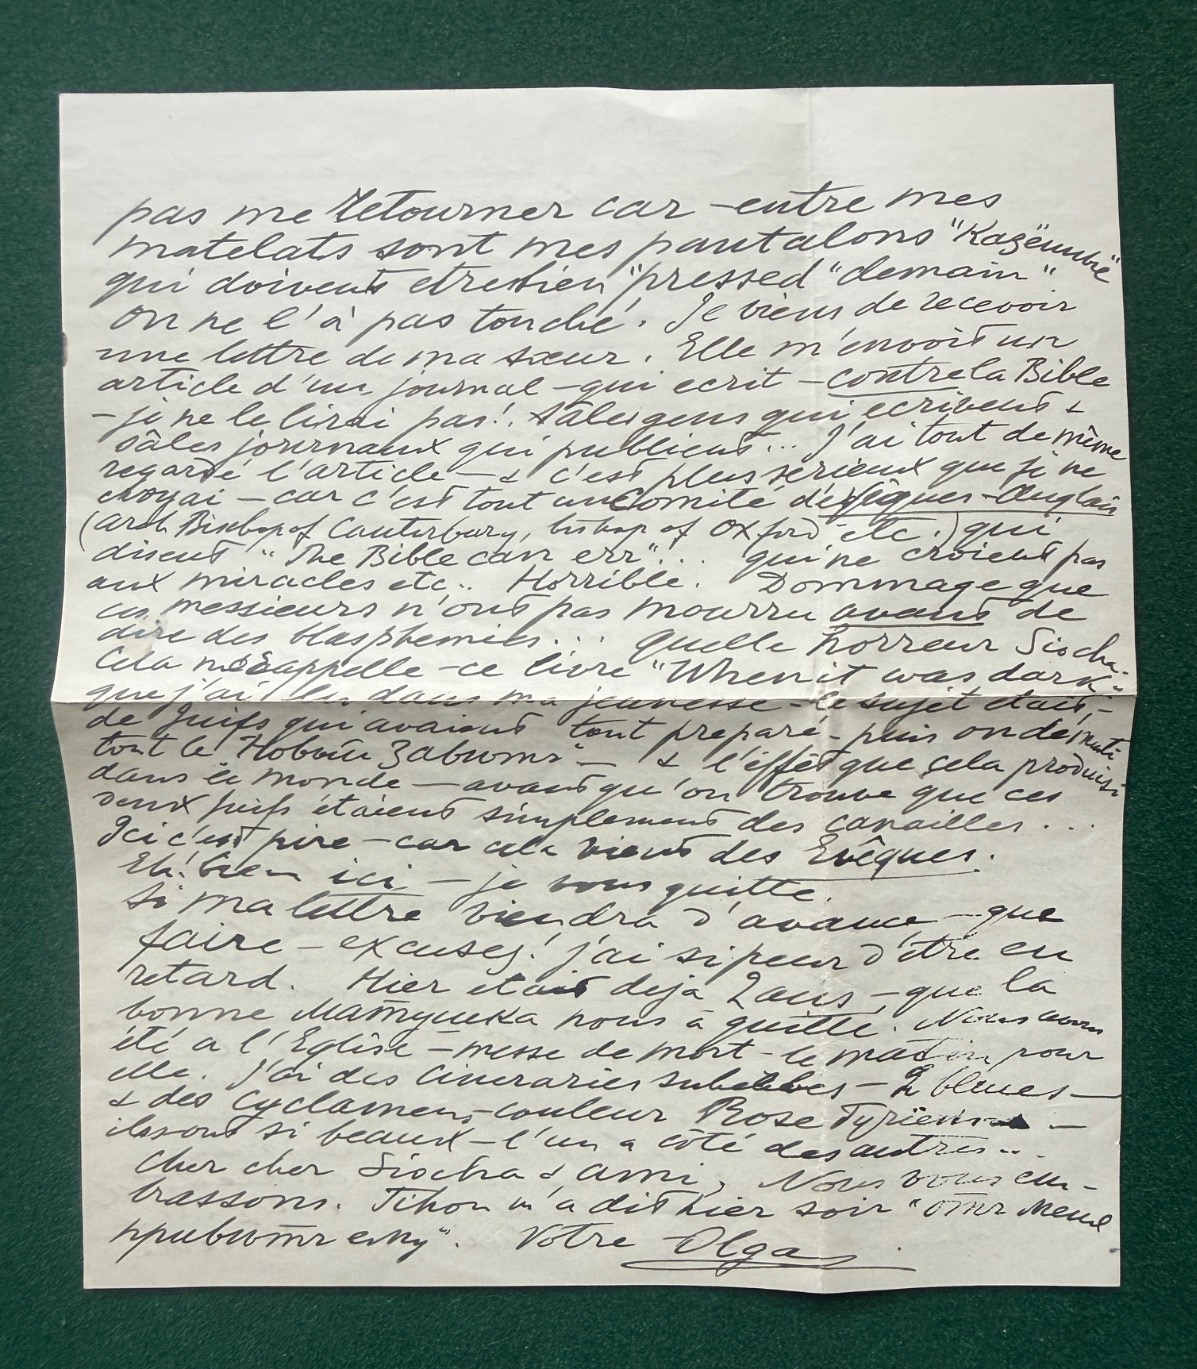 pas me retourner car - entre mes
matelats sont mes pantalons "Казённые"
qui doivent etre bien "pressed" demain"
On ne l'à pas touché. Je viens de recevoir
une lettre de ma sœur. Elle m'envoit un
article d'un journal - qui ecrit - contre la Bible
- je ne le lirai pas! Sâles gens qui ecrivent &
sâles journaux qui publient... J'ai tout de même
regardé l'article - & c'est plus serieux que je ne
croyai - car c'est tout un Comité d'evêques - Anglais
(arch Bishop of Canterbury, bishop of Oxford etc.) qui
disent "The Bible can err".... qui ne croient pas
aux miracles etc.. Horrible. Dommage que
ces messieurs n'ont pas mourru avant de
dire des blasphemies... quelle horreur Siocha-
Cela me rappelle - ce livre "When it was dark"
que j'ai lu dans ma jeunesse - le sujet était -
de Juifs qui avaient tout preparé - puis on
tout le Новый Завѣтъ - & l'effèt que çela produisi
dans le monde - avant qu'on trouve que ces
deux juifs étaient simplement des canailles...
Ici c'est pire - car cela vient des Evêques.
Eh! bien ici - je vous quitte.
Si ma lettre viendra d'avance - que
faire - excusez! j'ai si peur d'être en
retard. Hier etait deja 2 ans - que la
bonne Матушка nous à quitté. Nous avons
été a l'Eglise - messe de mort - le matin pour
elle. J'ai des Cineraries - 2 bleues -
& des Cyclamens - couleur Rose Tyrien -
ils sont si beaux - l'un a côté des autres...
Cher cher Siocha & ami, Nous vous em-
brassons. Tihon m'a dit hier soir "отъ меня
привѣтъ ему". Votre Olga.